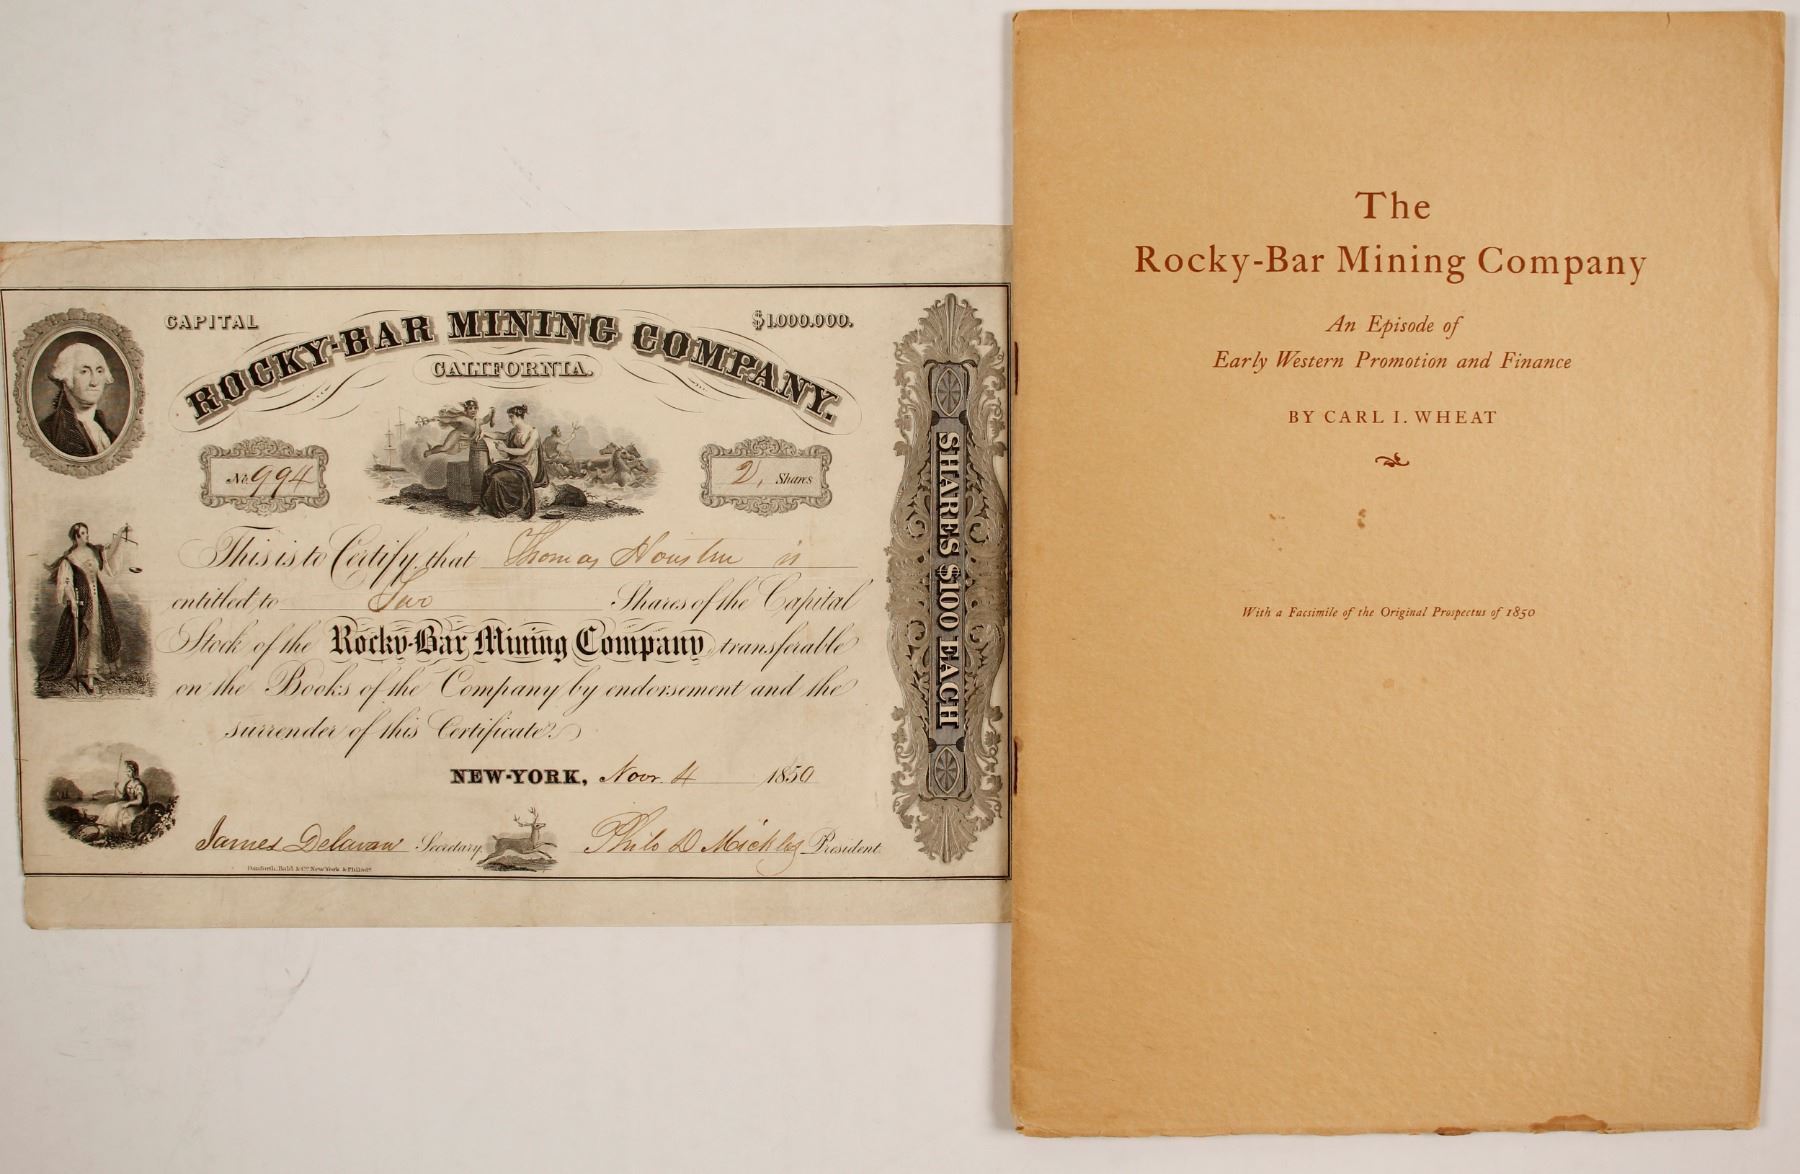 CAPITAL
$1.000.000.
ROCKY-BAR MINING COMPANY.
CALIFORNIA.
No. 994
2, Shares
This is to Certify, that Thomas Houston is
entitled to Two Shares of the Capital
Stock of the Rocky-Bar Mining Company transferable
on the Books of the Company by endorsement and the
surrender of this Certificate.
NEW-YORK, Novr. 4 1850
James Delavan Secretary.
Philo D Mickles President.
Danforth, Bald & Co. New York & Philada.
SHARES $100 EACH
The
Rocky-Bar Mining Company
An Episode of
Early Western Promotion and Finance
BY CARL I. WHEAT
With a Facsimile of the Original Prospectus of 1850